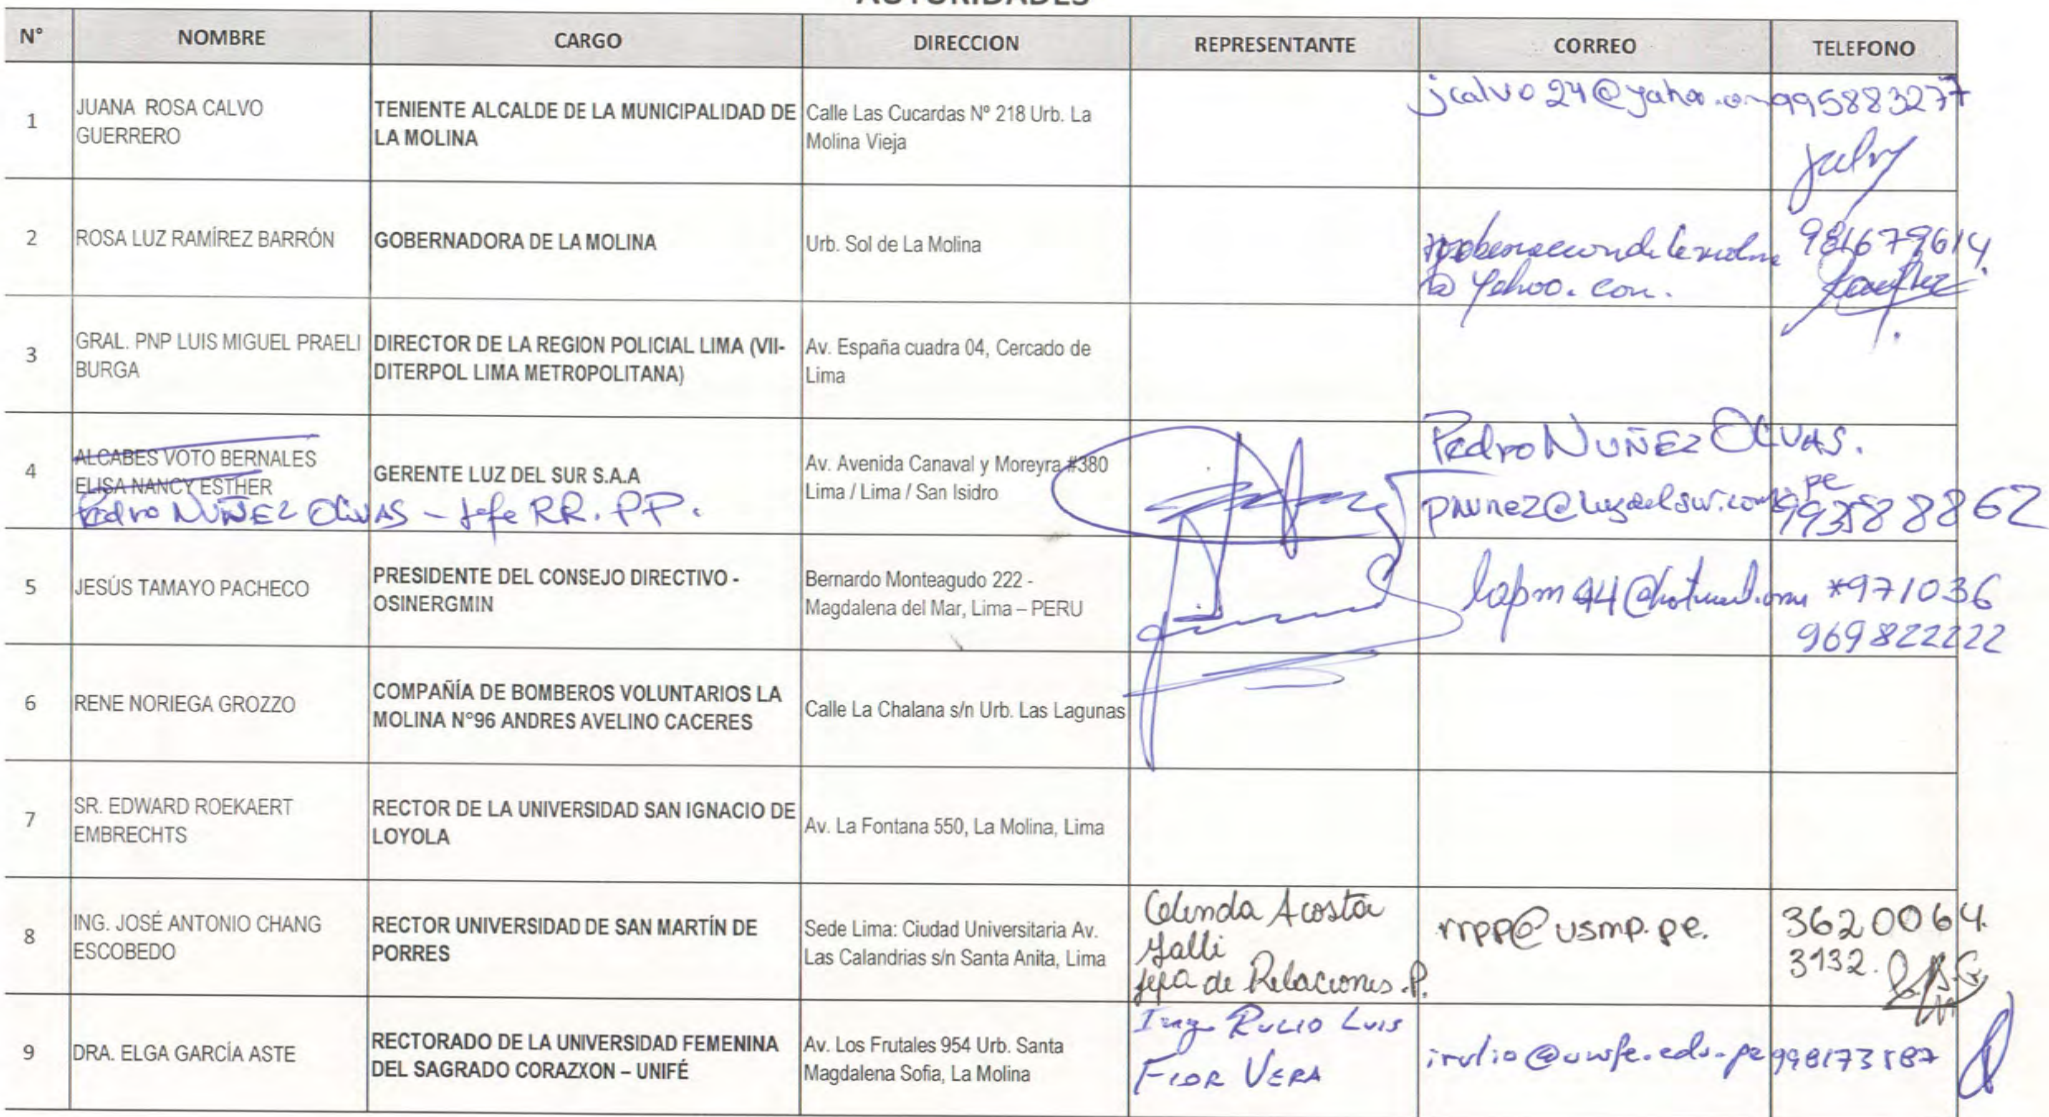 AUTORIDADES
N° NOMBRE CARGO DIRECCION REPRESENTANTE CORREO TELEFONO
1 JUANA ROSA CALVO GUERRERO TENIENTE ALCALDE DE LA MUNICIPALIDAD DE LA MOLINA Calle Las Cucardas Nº 218 Urb. La Molina Vieja 995883277
2 ROSA LUZ RAMÍREZ BARRÓN GOBERNADORA DE LA MOLINA Urb. Sol de La Molina 981679614
3 GRAL. PNP LUIS MIGUEL PRAELI BURGA DIRECTOR DE LA REGION POLICIAL LIMA (VII-DITERPOL LIMA METROPOLITANA) Av. España cuadra 04, Cercado de Lima
4 ALCABES VOTO BERNALES ELISA NANCY ESTHER GERENTE LUZ DEL SUR S.A.A Av. Avenida Canaval y Moreyra #380 Lima / Lima / San Isidro Pedro NUÑEZ OLIVAS.
Pedro NUÑEZ OLIVAS - Jefe RR. PP. pnunez@luzdelsur.com.pe 993588862
5 JESÚS TAMAYO PACHECO PRESIDENTE DEL CONSEJO DIRECTIVO - OSINERGMIN Bernardo Monteagudo 222 - Magdalena del Mar, Lima – PERU *971036
969822222
6 RENE NORIEGA GROZZO COMPAÑÍA DE BOMBEROS VOLUNTARIOS LA MOLINA N°96 ANDRES AVELINO CACERES Calle La Chalana s/n Urb. Las Lagunas
7 SR. EDWARD ROEKAERT EMBRECHTS RECTOR DE LA UNIVERSIDAD SAN IGNACIO DE LOYOLA Av. La Fontana 550, La Molina, Lima
8 ING. JOSÉ ANTONIO CHANG ESCOBEDO RECTOR UNIVERSIDAD DE SAN MARTÍN DE PORRES Sede Lima: Ciudad Universitaria Av. Las Calandrias s/n Santa Anita, Lima Celinda Acosta Galli Jefa de Relaciones P. rrpp@usmp.pe. 3620064.
3132.
9 DRA. ELGA GARCÍA ASTE RECTORADO DE LA UNIVERSIDAD FEMENINA DEL SAGRADO CORAZXON – UNIFÉ Av. Los Frutales 954 Urb. Santa Magdalena Sofia, La Molina Ing. RULIO LUIS FLOR VERA